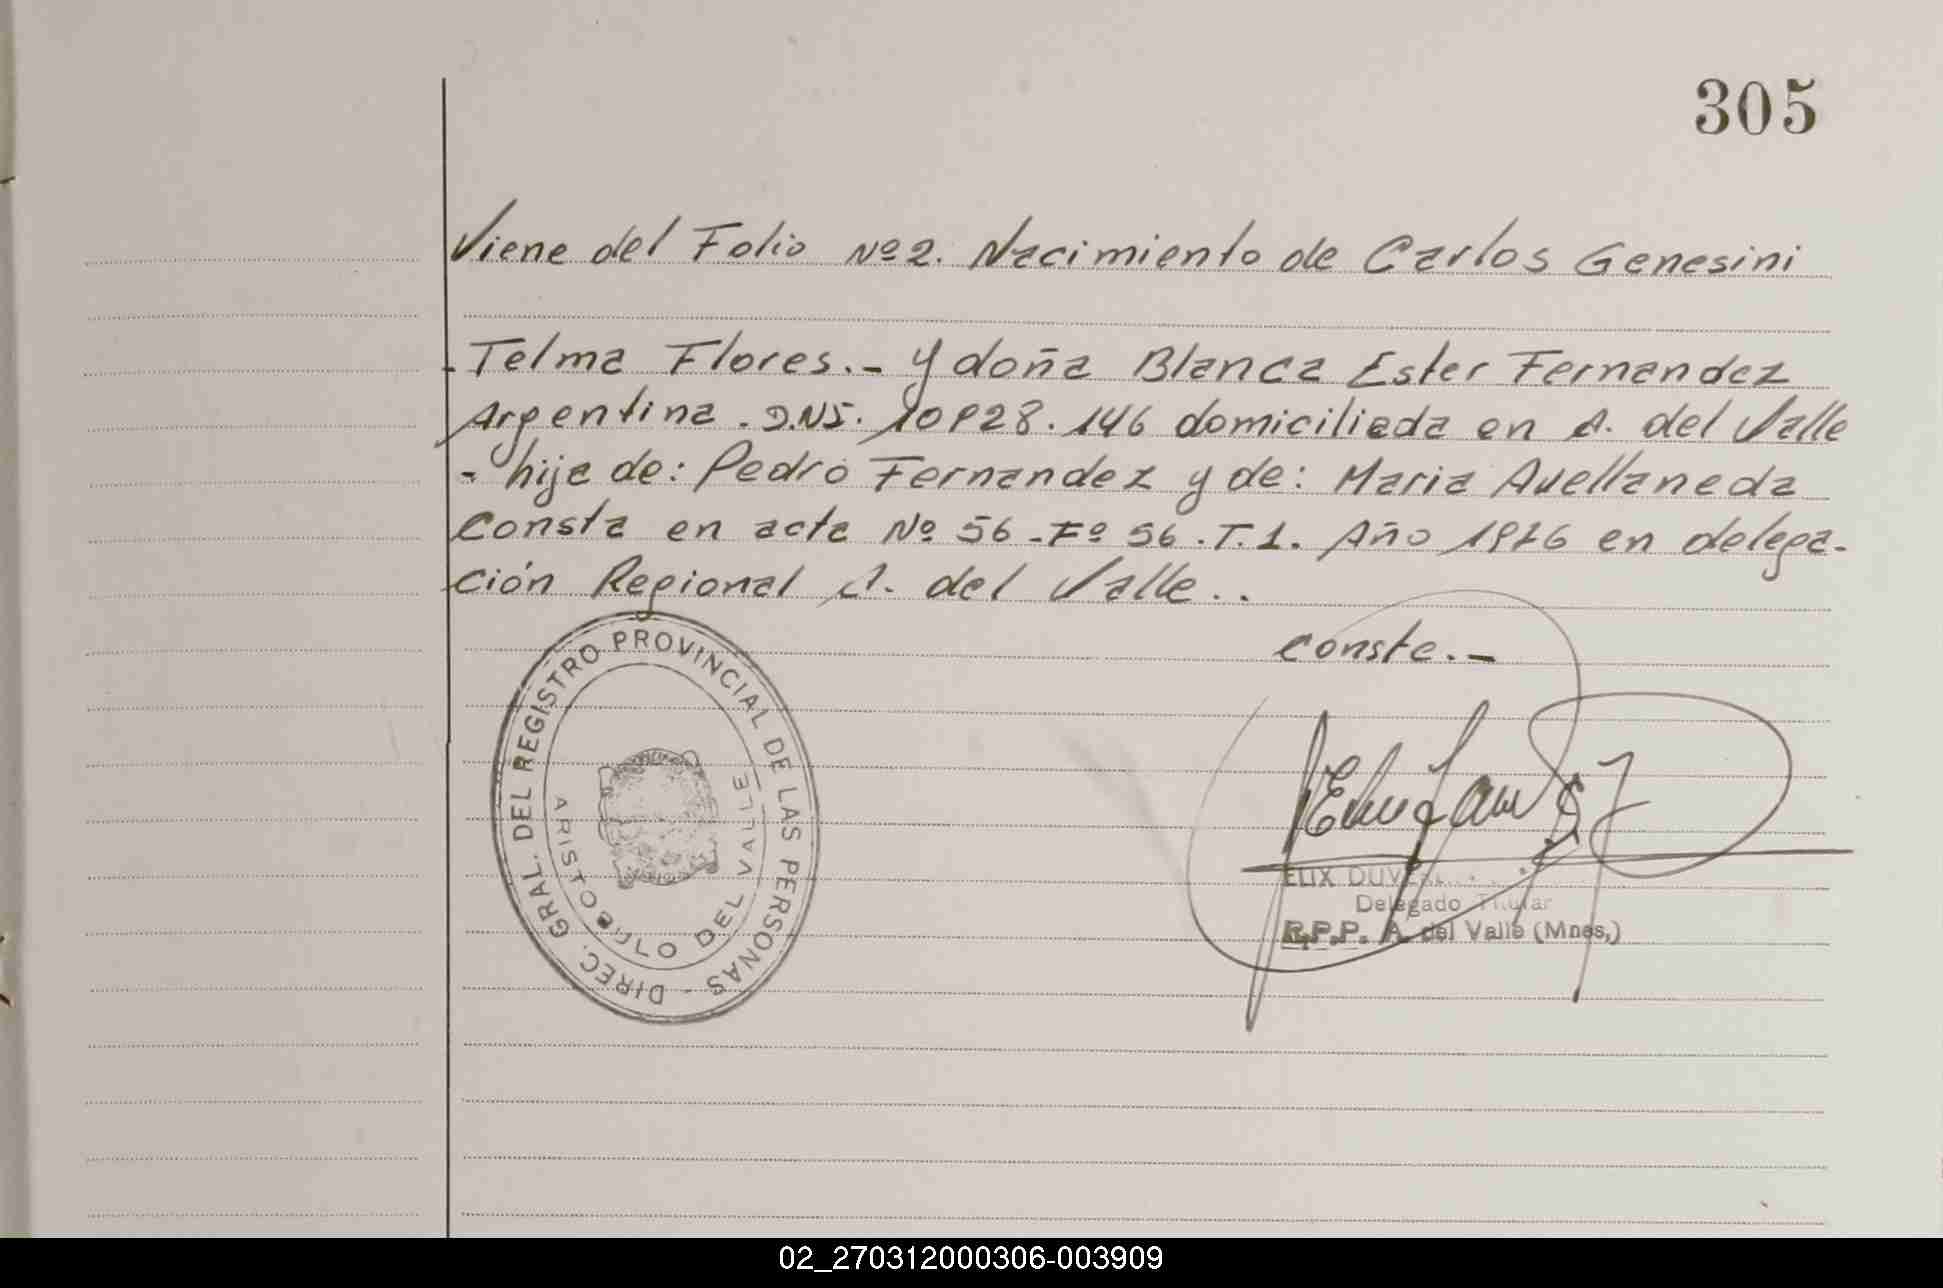 305
Viene del Folio Nº 2. Nacimiento de Carlos Genesini
- Telma Flores.- y doña Blanca Ester Fernandez
Argentina. D.N.I. 10928.146 domiciliada en A. del Valle
- hija de: Pedro Fernandez y de: Maria Avellaneda
Consta en acta Nº 56 - Fº 56. T.1. Año 1976 en delega-
ción Regional A. del Valle..
Conste.-
DIREC. GRAL. DEL REGISTRO PROVINCIAL DE LAS PERSONAS -
ARISTOBULO DEL VALLE
ELIX
Delegado Titular
R.P.P. A. del Valle (Mnes,)
02_270312000306-003909